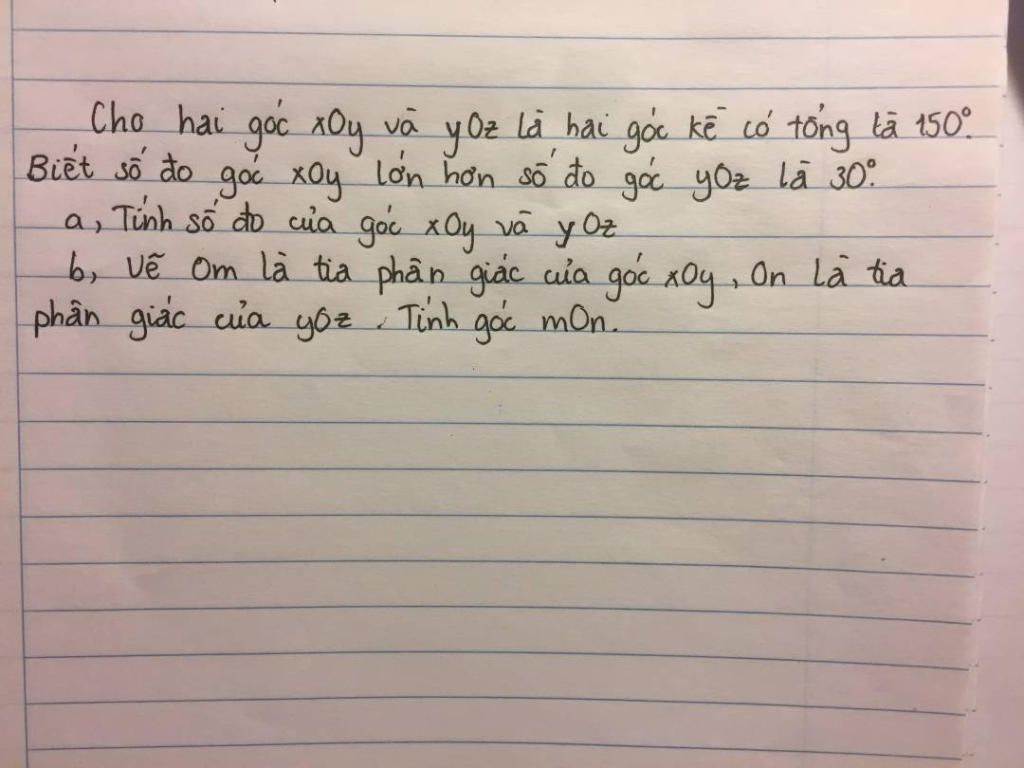 Cho hai góc xOy và yOz là hai góc kề có tổng là 150°.
Biết số đo góc xOy lớn hơn số đo góc yOz là 30°.
a, Tính số đo của góc xOy và yOz
b, Vẽ Om là tia phân giác của góc xOy, On là tia
phân giác của yOz. Tính góc mOn.